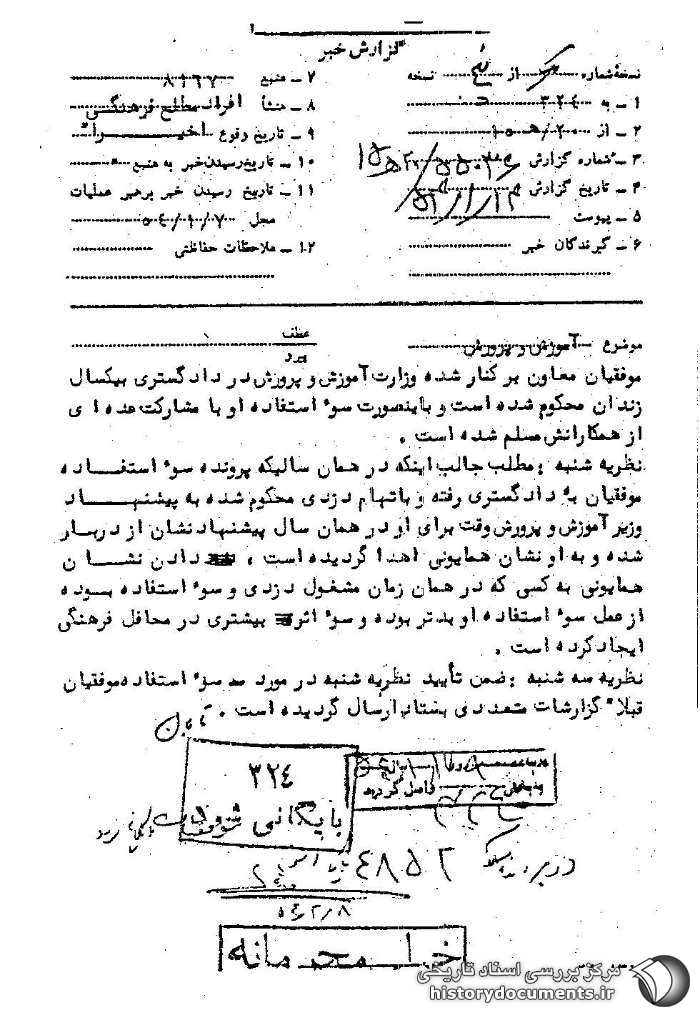 گزارش خبر
نسخهٔ شماره از نسخه
۱ ــ به ۳۲٤
۲ ــ از ۲۰ه۱۰
۳ ــ شماره گزارش
۴ ــ تاریخ گزارش
۵ ــ پیوست
۶ ــ گیرندگان خبر
۷ ــ منبع ۸۱۶۷
۸ ــ منشأ افراد مطلع فرهنگی
۹ ــ تاریخ وقوع اخیرا
۱۰ ــ تاریخ رسیدن خبر به منبع
۱۱ ــ تاریخ رسیدن خبر برهبر عملیات
محل ۵٤/۱۰/۷
۱۲ ــ ملاحظات حفاظتی
موضوع آموزش و پرورش
عطف
پیرو
موفقیان معاون برکنار شده وزارت آموزش و پرورش در دادگستری بیکسال
زندان محکوم شده است و باینصورت سوء استفاده او با مشارکت عده ای
از همکارانش مسلم شده است .
نظریه شنبه : مطلب جالب اینکه در همان سالیکه پرونده سوء استفاده
موفقیان به دادگستری رفته و باتهام دزدی محکوم شده به پیشنهاد
وزیر آموزش و پرورش وقت برای او در همان سال پیشنهاد نشان از دربار
شده و به او نشان همایونی اهدا گردیده است ، دادن نشان
همایونی به کسی که در همان زمان مشغول دزدی و سوء استفاده بوده
از عمل سوء استفاده او بدتر بوده و سوء اثر بیشتری در محافل فرهنگی
ایجاد کرده است .
نظریه سه شنبه : ضمن تأیید نظریه شنبه در مورد سوء استفاده موفقیان
قبلاً گزارشات متعددی بستاد ارسال گردیده است .
۳۲٤
بایگانی شود
واصل گردید
٤۸۵۲
خیلی محرمانه
مرکز بررسی اسناد تاریخی
historydocuments.ir